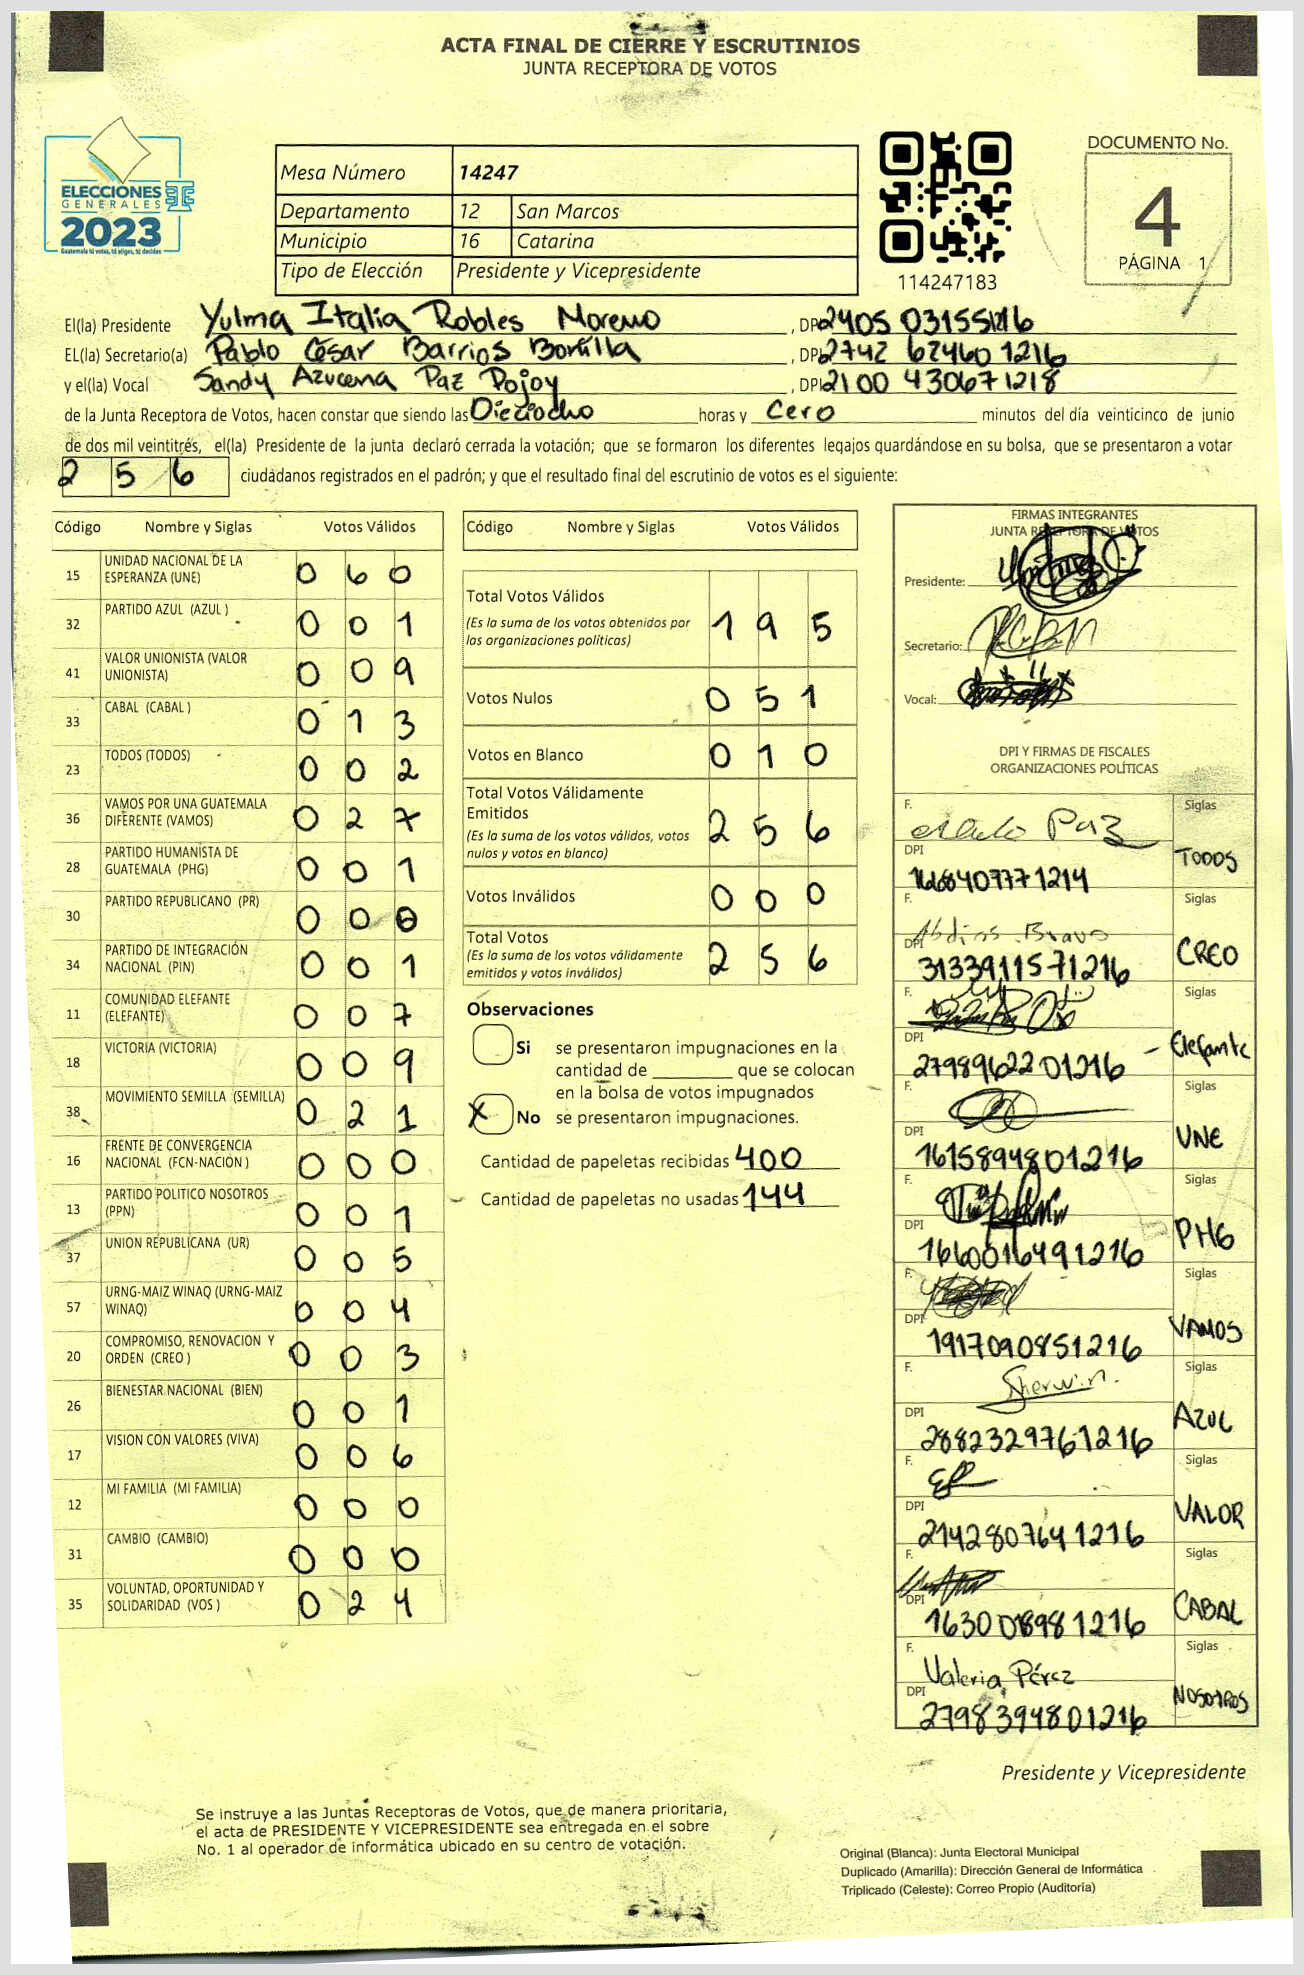 ACTA FINAL DE CIERRE Y ESCRUTINIOS
JUNTA RECEPTORA DE VOTOS
ELECCIONES
GENERALES
2023
Guatemala tú votas, tú eliges, tú decides
Mesa Número 14247
Departamento 12 San Marcos
Municipio 16 Catarina
Tipo de Elección Presidente y Vicepresidente
114247183
DOCUMENTO No.
4
PÁGINA 1
El(la) Presidente Yulma Italia Robles Moreno, DPI
EL(la) Secretario(a) Pablo César Barrios Bonilla, DPI 2742 62460 1216
y el(la) Vocal Sandy Azucena Paz Pojoy, DPI 2100 43067 1218
de la Junta Receptora de Votos, hacen constar que siendo las Dieciocho horas y Cero minutos del día veinticinco de junio
de dos mil veintitrés, el(la) Presidente de la junta declaró cerrada la votación; que se formaron los diferentes legajos guardándose en su bolsa, que se presentaron a votar
256 ciudadanos registrados en el padrón; y que el resultado final del escrutinio de votos es el siguiente:
Código Nombre y Siglas Votos Válidos
15 UNIDAD NACIONAL DE LA ESPERANZA (UNE) 0 6 0
32 PARTIDO AZUL (AZUL ) 0 0 1
41 VALOR UNIONISTA (VALOR UNIONISTA) 0 0 9
33 CABAL (CABAL ) 0 1 3
23 TODOS (TODOS) 0 0 2
36 VAMOS POR UNA GUATEMALA DIFERENTE (VAMOS) 0 2 7
28 PARTIDO HUMANISTA DE GUATEMALA (PHG) 0 0 1
30 PARTIDO REPUBLICANO (PR) 0 0 0
34 PARTIDO DE INTEGRACIÓN NACIONAL (PIN) 0 0 1
11 COMUNIDAD ELEFANTE (ELEFANTE) 0 0 7
18 VICTORIA (VICTORIA) 0 0 9
38 MOVIMIENTO SEMILLA (SEMILLA) 0 2 1
16 FRENTE DE CONVERGENCIA NACIONAL (FCN-NACION ) 0 0 0
13 PARTIDO POLITICO NOSOTROS (PPN) 0 0 1
37 UNION REPUBLICANA (UR) 0 0 5
57 URNG-MAIZ WINAQ (URNG-MAIZ WINAQ) 0 0 4
20 COMPROMISO, RENOVACION Y ORDEN (CREO ) 0 0 3
26 BIENESTAR NACIONAL (BIEN) 0 0 1
17 VISION CON VALORES (VIVA) 0 0 6
12 MI FAMILIA (MI FAMILIA) 0 0 0
31 CAMBIO (CAMBIO) 0 0 0
35 VOLUNTAD, OPORTUNIDAD Y SOLIDARIDAD (VOS ) 0 2 4
Código Nombre y Siglas Votos Válidos
Total Votos Válidos 1 9 5
(Es la suma de los votos obtenidos por
las organizaciones políticas)
Votos Nulos 0 5 1
Votos en Blanco 0 1 0
Total Votos Válidamente
Emitidos 2 5 6
(Es la suma de los votos válidos, votos
nulos y votos en blanco)
Votos Inválidos 0 0 0
Total Votos 2 5 6
(Es la suma de los votos válidamente
emitidos y votos inválidos)
Observaciones
Si se presentaron impugnaciones en la
cantidad de ________ que se colocan
en la bolsa de votos impugnados
X No se presentaron impugnaciones.
Cantidad de papeletas recibidas 400
Cantidad de papeletas no usadas 144
FIRMAS INTEGRANTES
JUNTA RECEPTORA DE VOTOS
Presidente:
Secretario:
Vocal:
DPI Y FIRMAS DE FISCALES
ORGANIZACIONES POLÍTICAS
F. Paz Siglas
DPI TODOS
F. Abdias Bravo Siglas
DPI 3133911571216 CREO
F. Siglas
DPI 2798962201216 Elefante
F. Siglas
DPI 1615894801216 UNE
F. Siglas
DPI 1660016491216 PHG
F. Siglas
DPI 1917090851216 VAMOS
F. Sherwin. Siglas
DPI 2882329761216 AZUL
F. Siglas
DPI 2142807641216 VALOR
F. Siglas
DPI 1630018981216 CABAL
F. Valeria Pérez Siglas
DPI 2798394801216 NOSOTROS
Presidente y Vicepresidente
Se instruye a las Juntas Receptoras de Votos, que de manera prioritaria,
el acta de PRESIDENTE Y VICEPRESIDENTE sea entregada en el sobre
No. 1 al operador de informática ubicado en su centro de votación.
Original (Blanca): Junta Electoral Municipal
Duplicado (Amarilla): Dirección General de Informática
Triplicado (Celeste): Correo Propio (Auditoría)